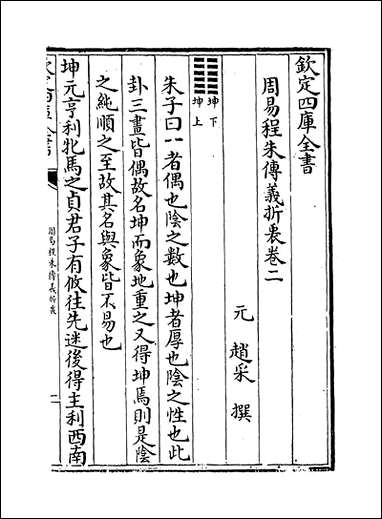 欽定四庫全書
周易程朱傳義折衷卷二
元 趙采 撰
坤下
坤上
朱子曰⚋者偶也陰之數也坤者厚也陰之性也此
卦三畫皆偶故名坤而象地重之又得坤焉則是陰
之純順之至故其名與象皆不易也
坤元亨利牝馬之貞君子有攸往先迷後得主利西南
周易程朱傳義折衷